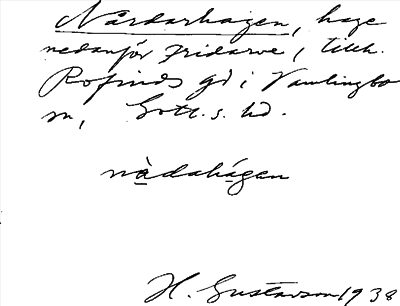 Nårdarhagen, hage
nedanför Fridarve, tillh.
Rofinds gd i Vamlingbo
sn, Gotl. s. hd.
nàdahágan
H. Gustavson 1938